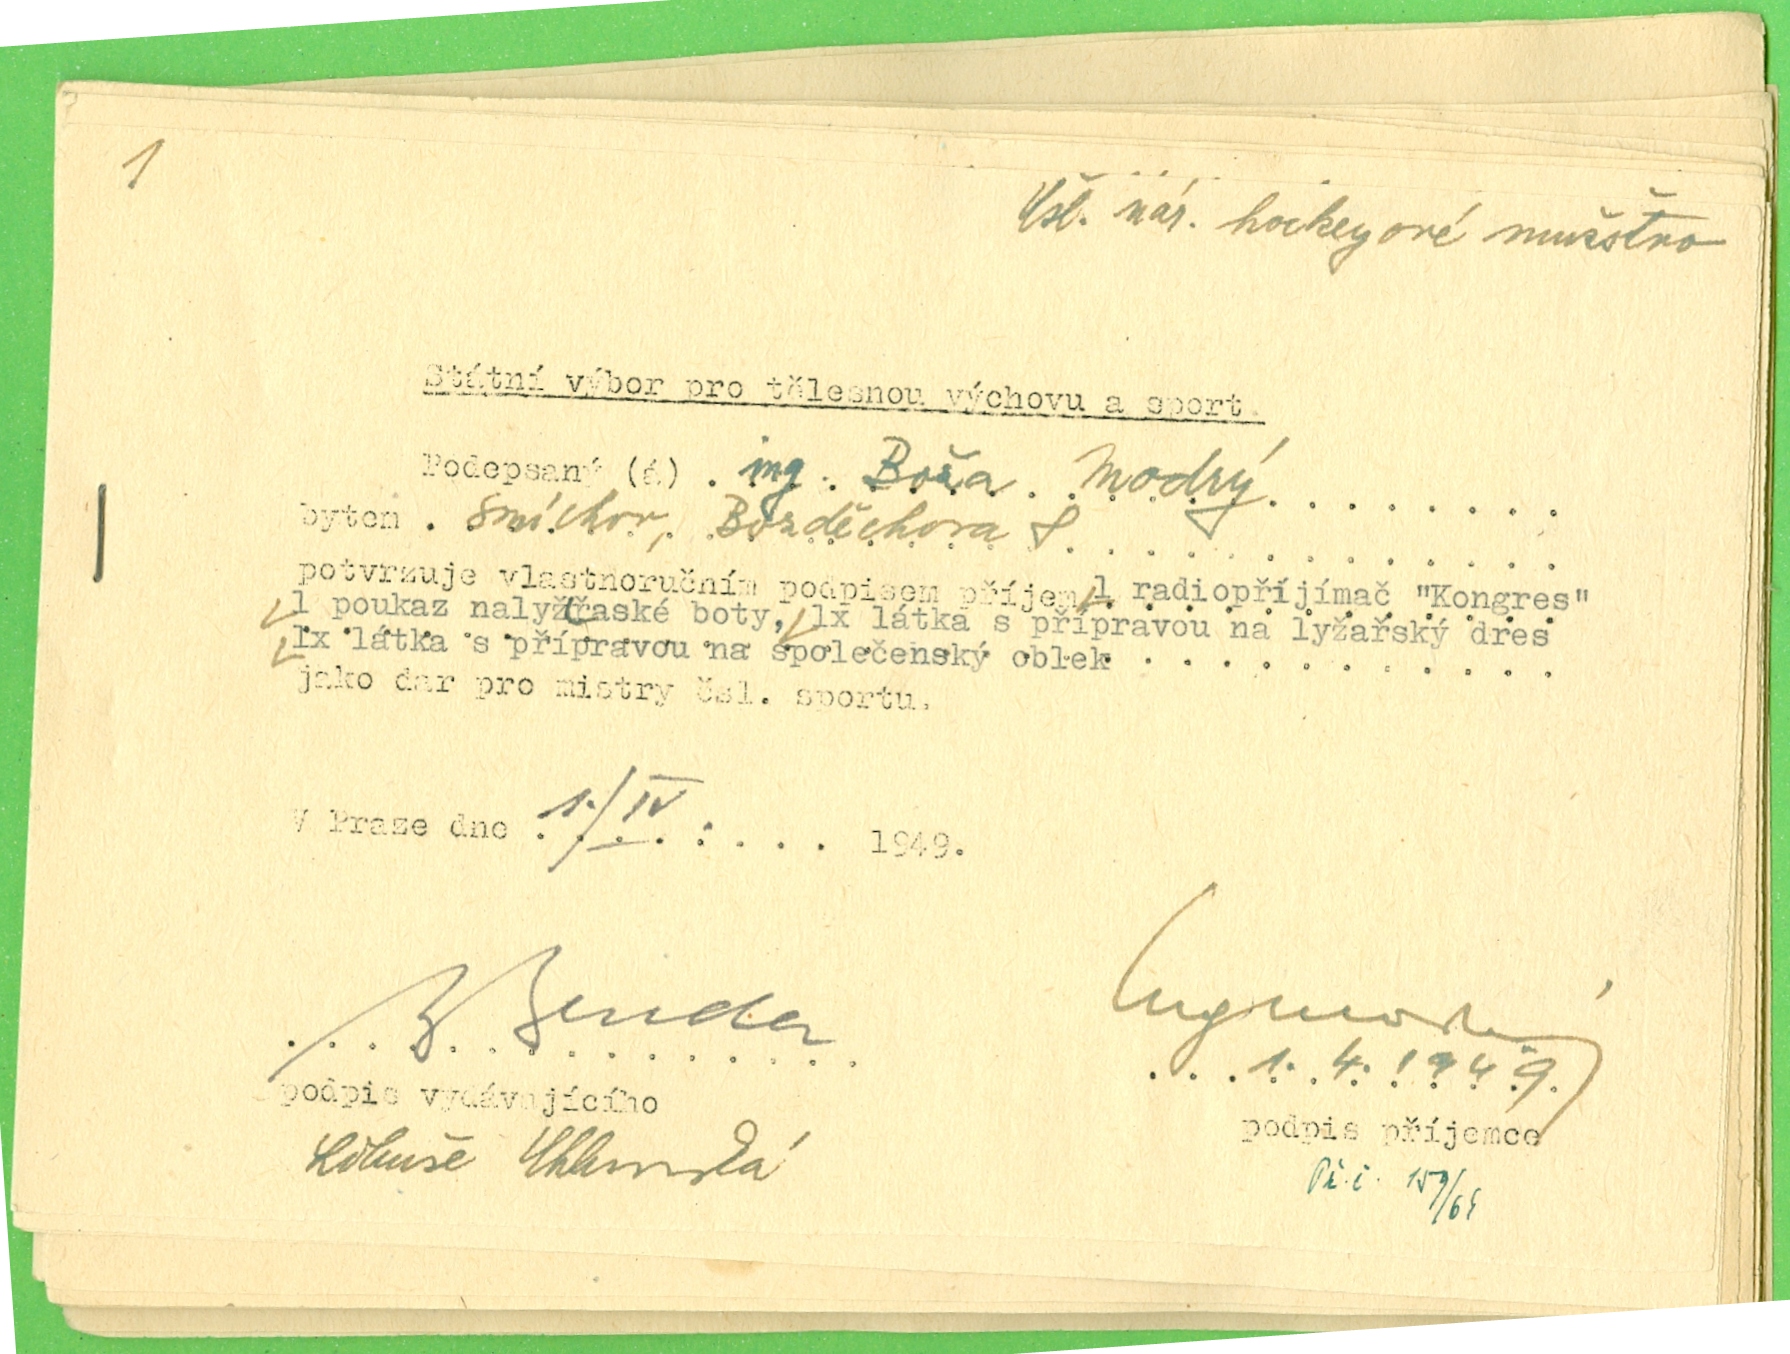 1
Čsl. nár. hockeyové mužstvo
Státní výbor pro tělesnou výchovu a sport.
Podepsaný (á) . ing. Boža Modrý . . . . . . . .
bytem . Smíchov, Bozděchova 8 . . . . . . . . . . . . .
potvrzuje vlastnoručním podpisem příjem 1 radiopřijímač "Kongres"
1 poukaz nalyžařaské boty, 1x látka s přípravou na lyžařský dres
1x látka s přípravou na společenský oblek . . . . . . . . . . .
jako dar pro mistry čsl. sportu.
V Praze dne 1./IV . . . . 1949.
Benda
Ing Modrý
1. 4. 1949.
podpis vydávajícího
podpis příjemce
Libuše
Př. č. 159/65